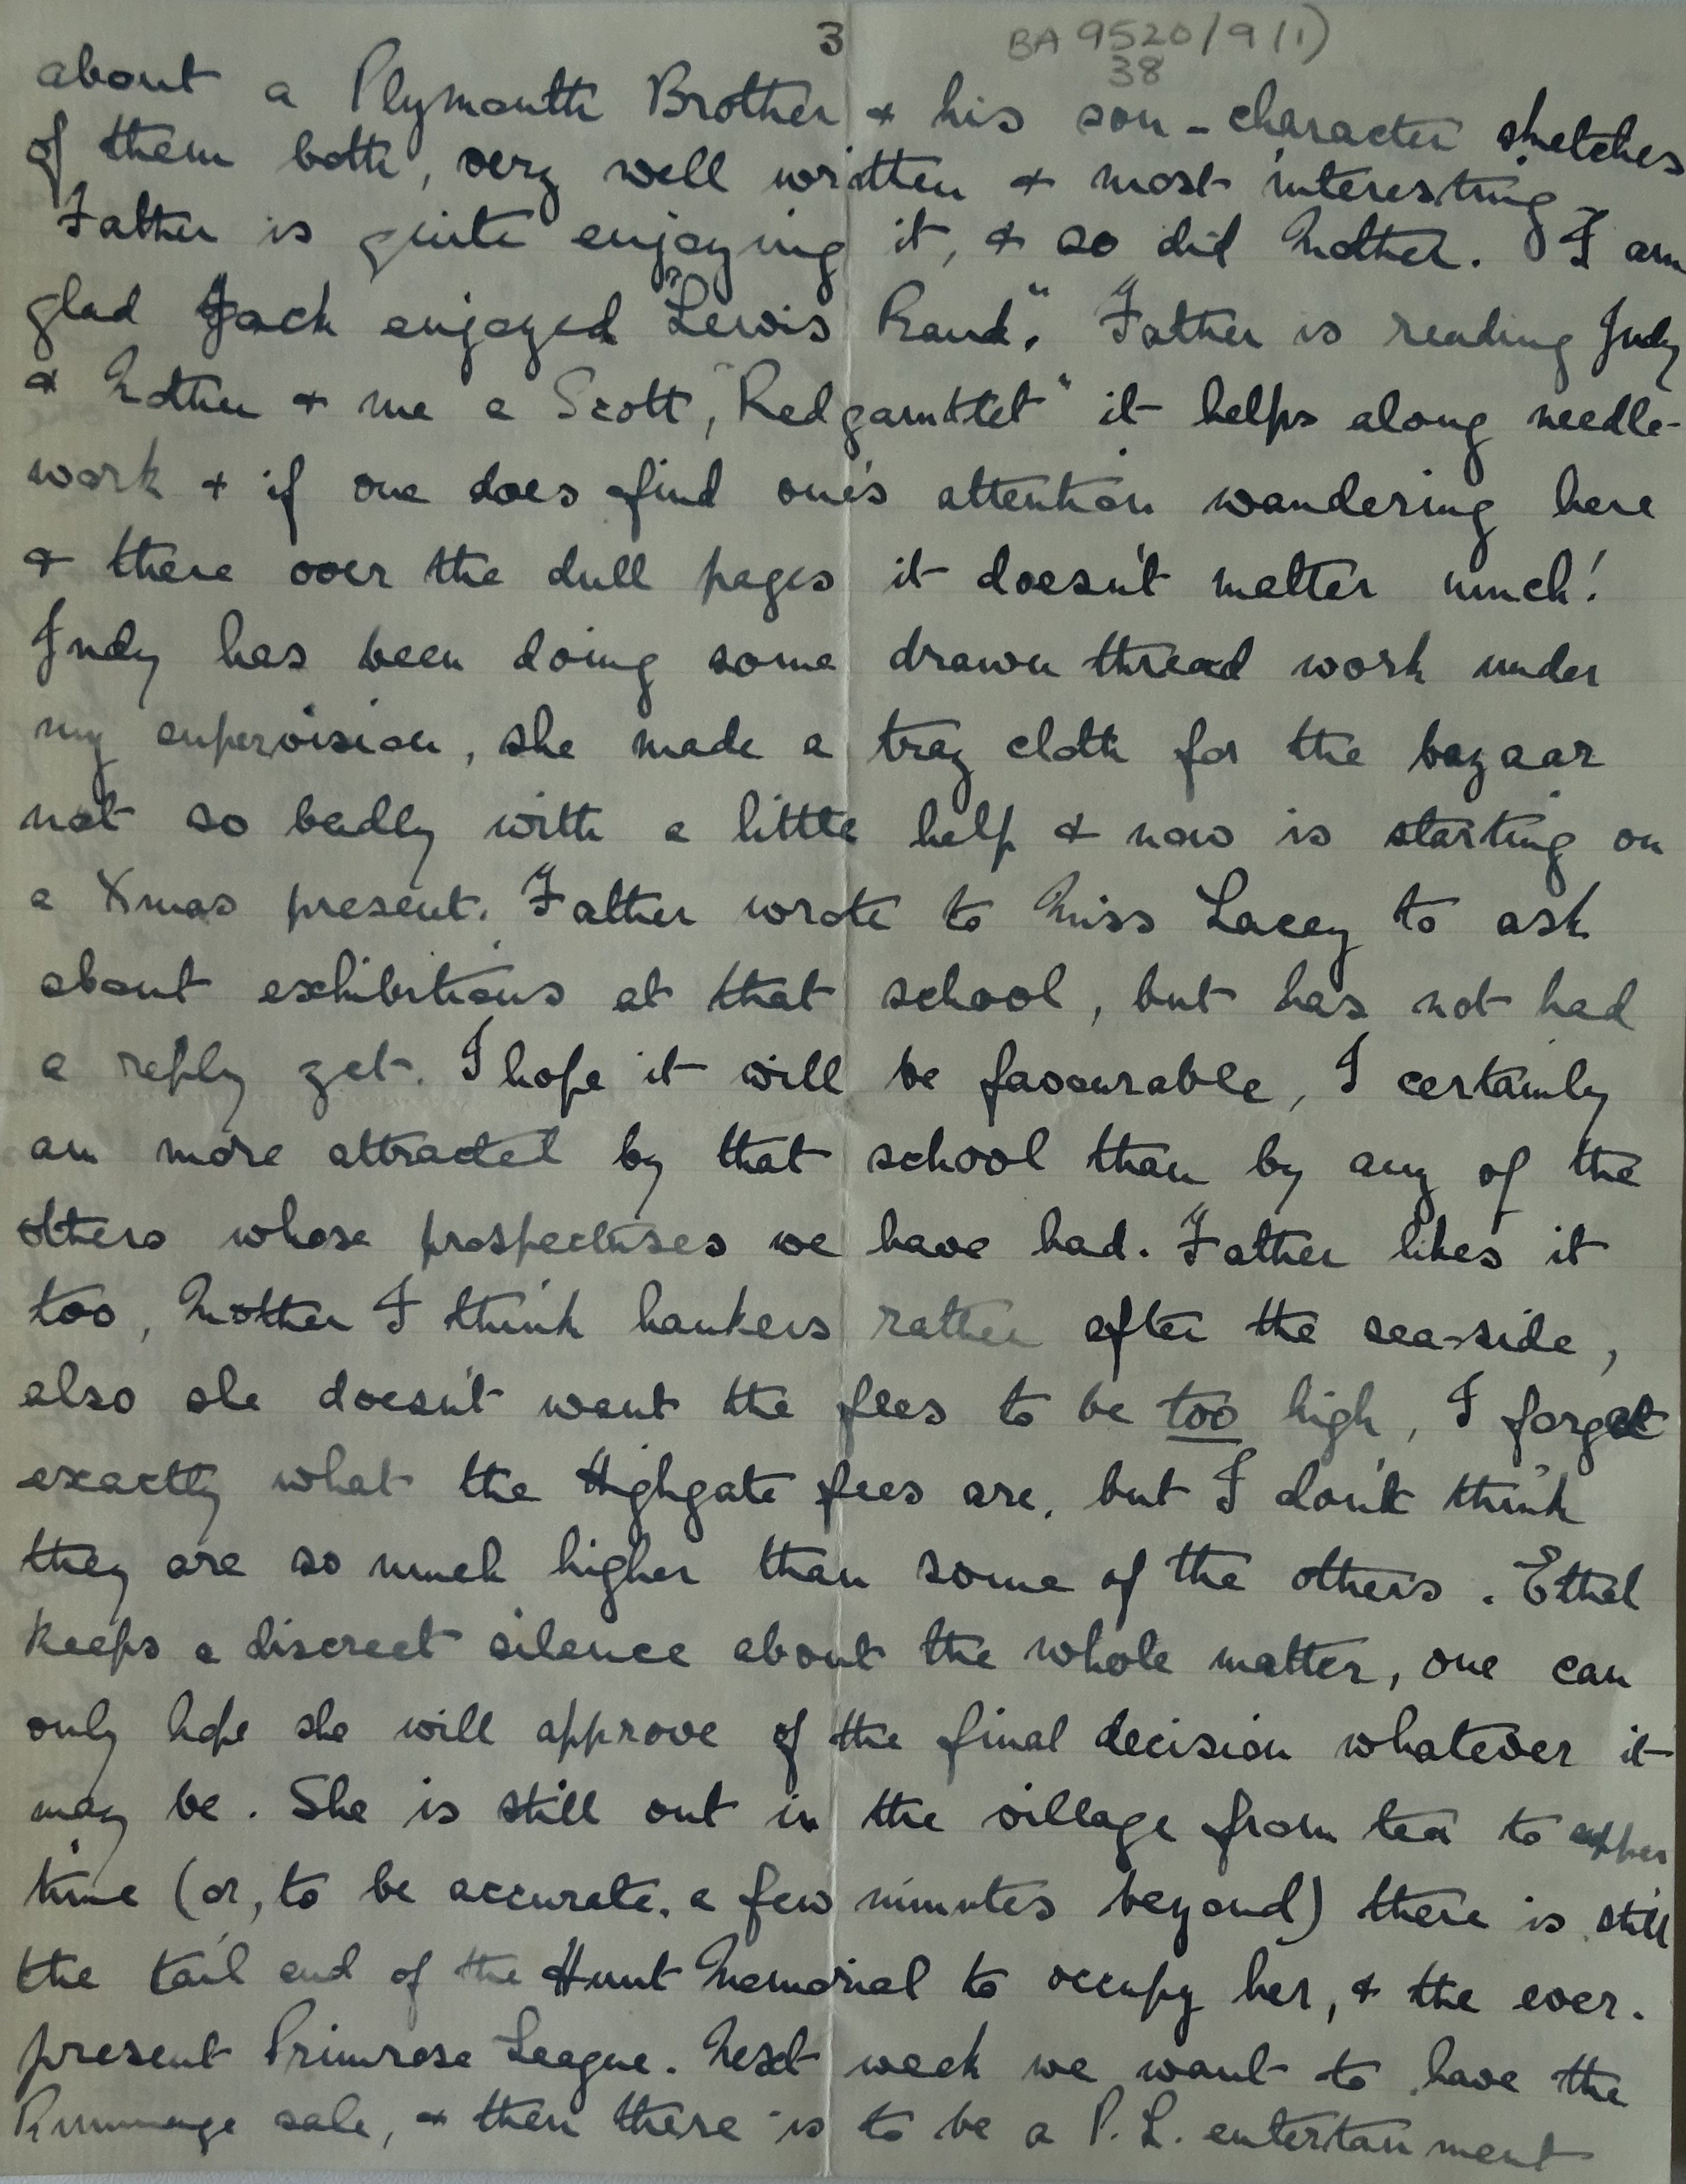 3
BA 9520/9(1)
38
about a Plymouth Brother & his son - character sketches
of them both, very well written & most interesting -
Father is quite enjoying it, & so did Mother. I am
glad Jack enjoyed "Lewis Rand." Father is reading Judy
& Mother & me a Scott, "Redgauntlet" it helps along needle-
work & if one does find one's attention wandering here
& there over the dull pages it doesn't matter much!
Judy has been doing some drawn thread work under
my supervision, she made a tray cloth for the bazaar
not so badly with a little help & now is starting on
a Xmas present. Father wrote to Miss Lacey to ask
about exhibitions at that school, but has not had
a reply yet. I hope it will be favourable, I certainly
am more attracted by that school than by any of the
others whose prospectuses we have had. Father likes it
too, Mother I think hankers rather after the sea-side,
also she doesn't want the fees to be too high, I forget
exactly what the Highgate fees are, but I don't think
they are so much higher than some of the others. Ethel
keeps a discreet silence about the whole matter, one can
only hope she will approve of the final decision whatever it
may be. She is still out in the village from tea to supper
time (or, to be accurate, a few minutes beyond) there is still
the tail end of the Hunt Memorial to occupy her, & the ever-
present Primrose League. Next week we want to have the
Rummage sale, & then there is to be a P. L. entertainment